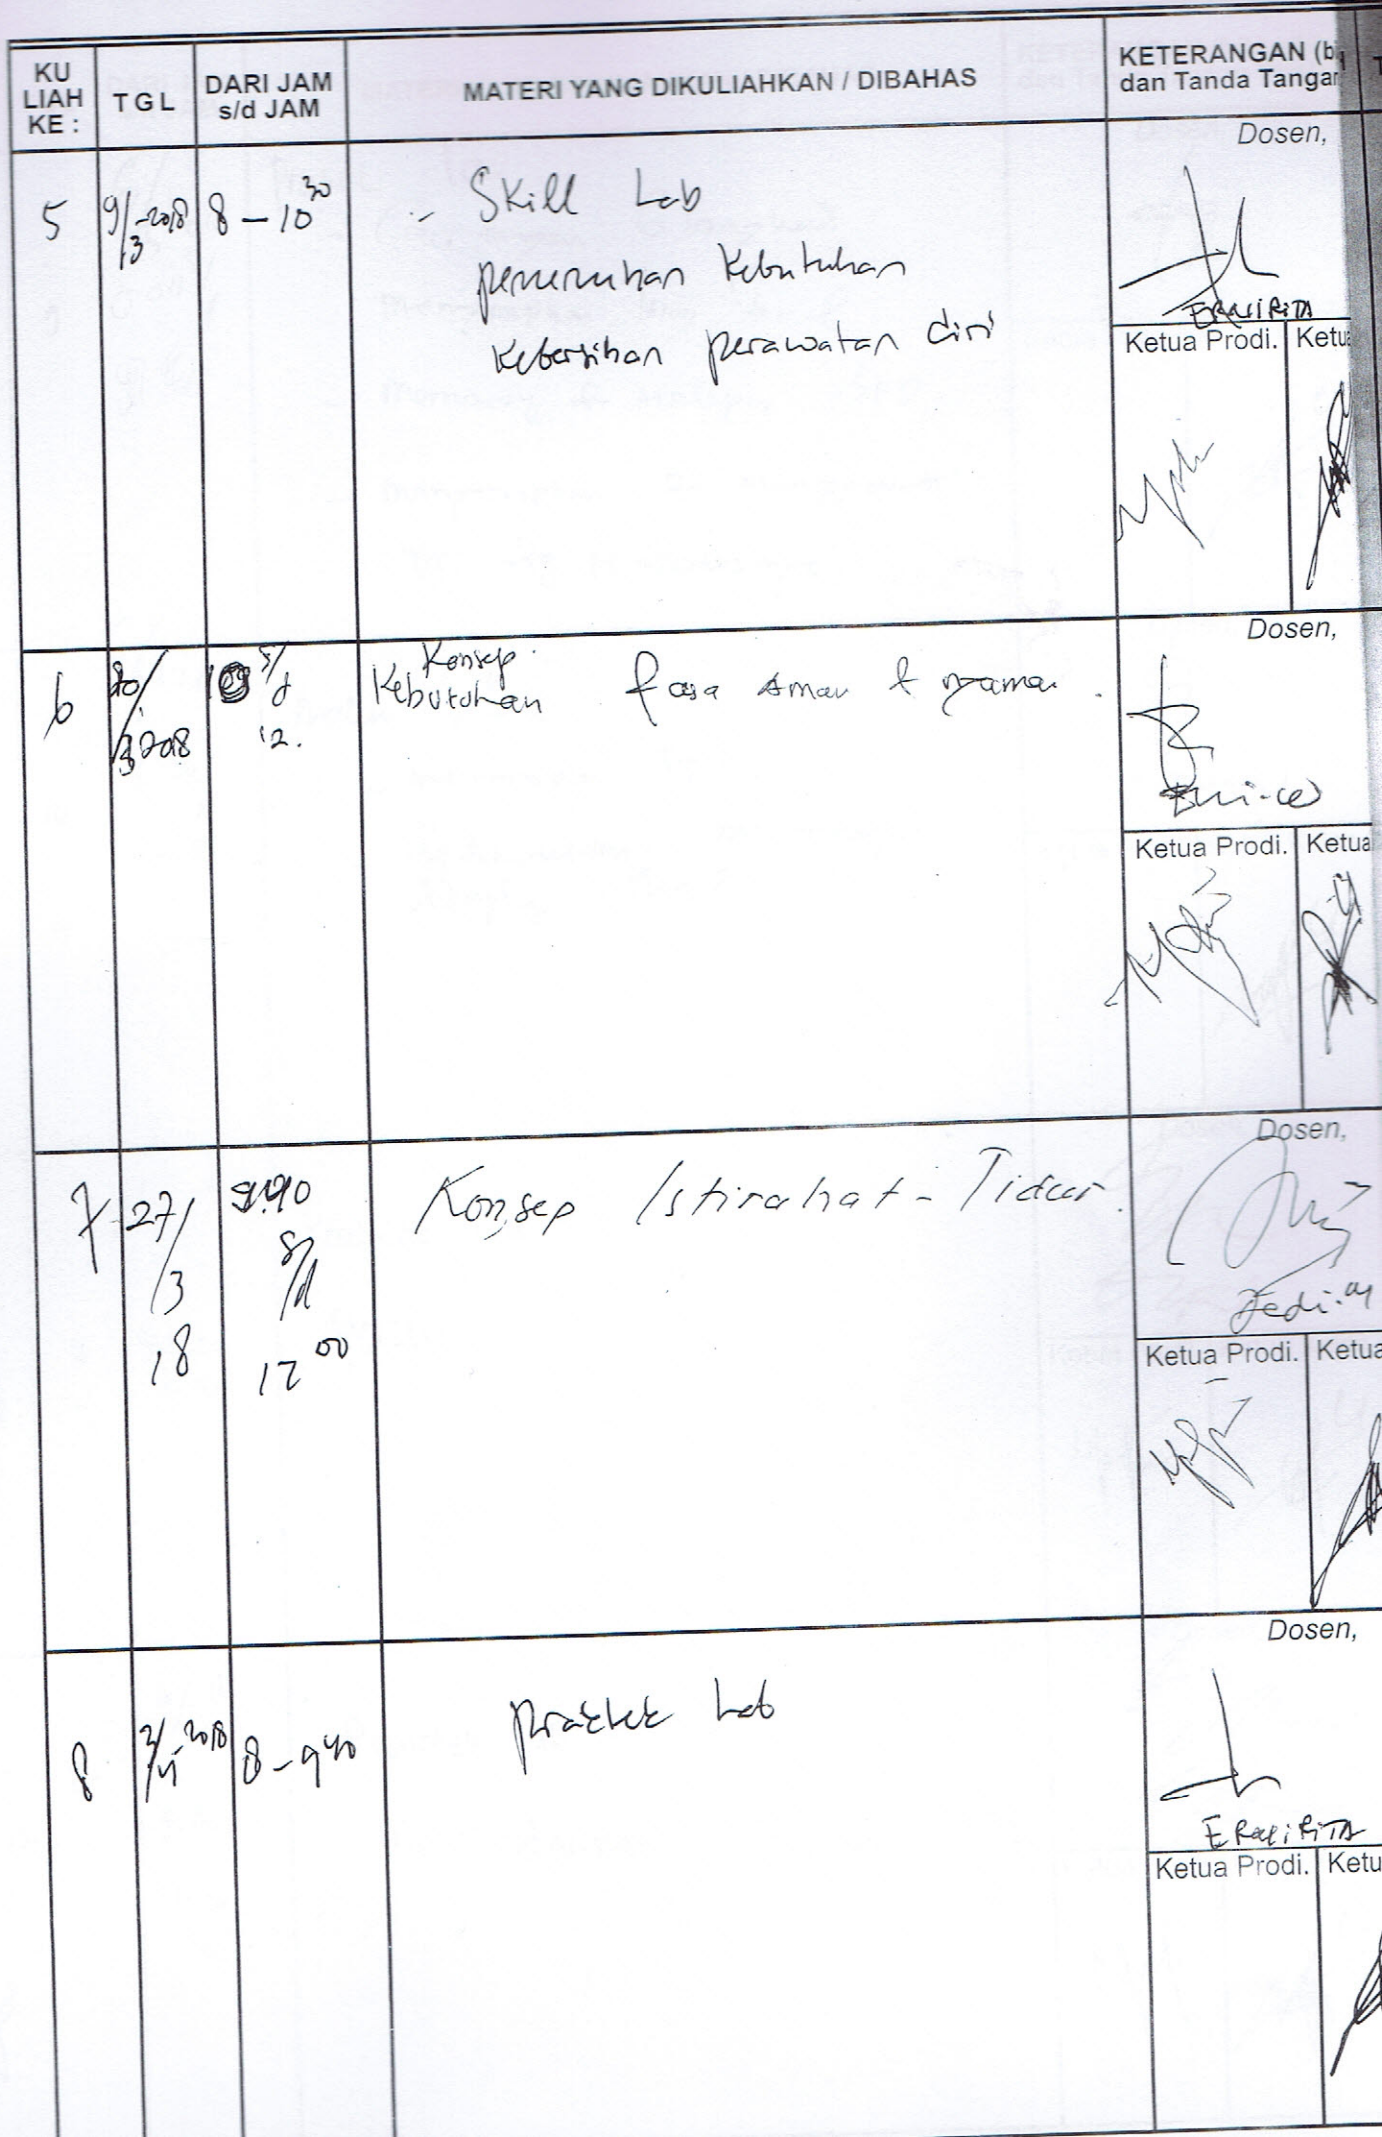 KU LIAH KE :
T G L
DARI JAM s/d JAM
MATERI YANG DIKULIAHKAN / DIBAHAS
KETERANGAN (bi
dan Tanda Tangan
5
9/3-2018
8 - 10 30
- Skill Lab
pemenuhan Kebutuhan
Kebersihan perawatan diri
Dosen,
ERNI RITA
Ketua Prodi.
Ketua
6
20/3 2018
s/d
12.
Konsep
Kebutuhan rasa aman & nyaman.
Dosen,
Ketua Prodi.
Ketua
7
27/
/3
18
9.40
s/d
12 00
Konsep Istirahat - Tidur.
Dosen,
Ketua Prodi.
Ketua
8
8 - 9 40
praktek Lab
Dosen,
ERNI RITA
Ketua Prodi.
Ketu